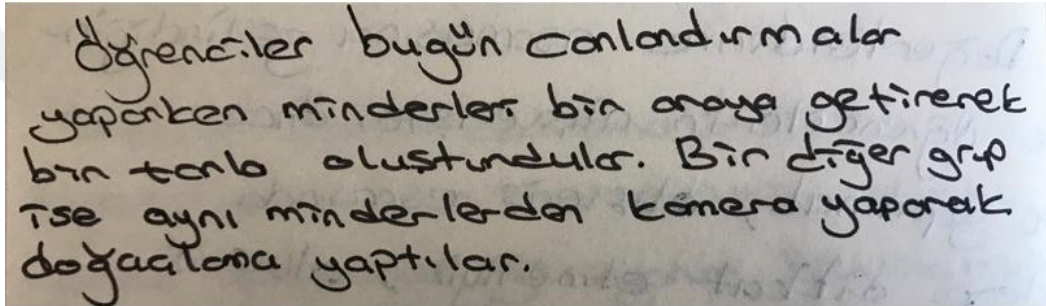 Öğrenciler bugün canlandırmalar
yaparken minderleri bir araya getirerek
bir tarla oluşturdular. Bir diğer grup
ise aynı minderlerden kamera yaparak
doğaçlama yaptılar.